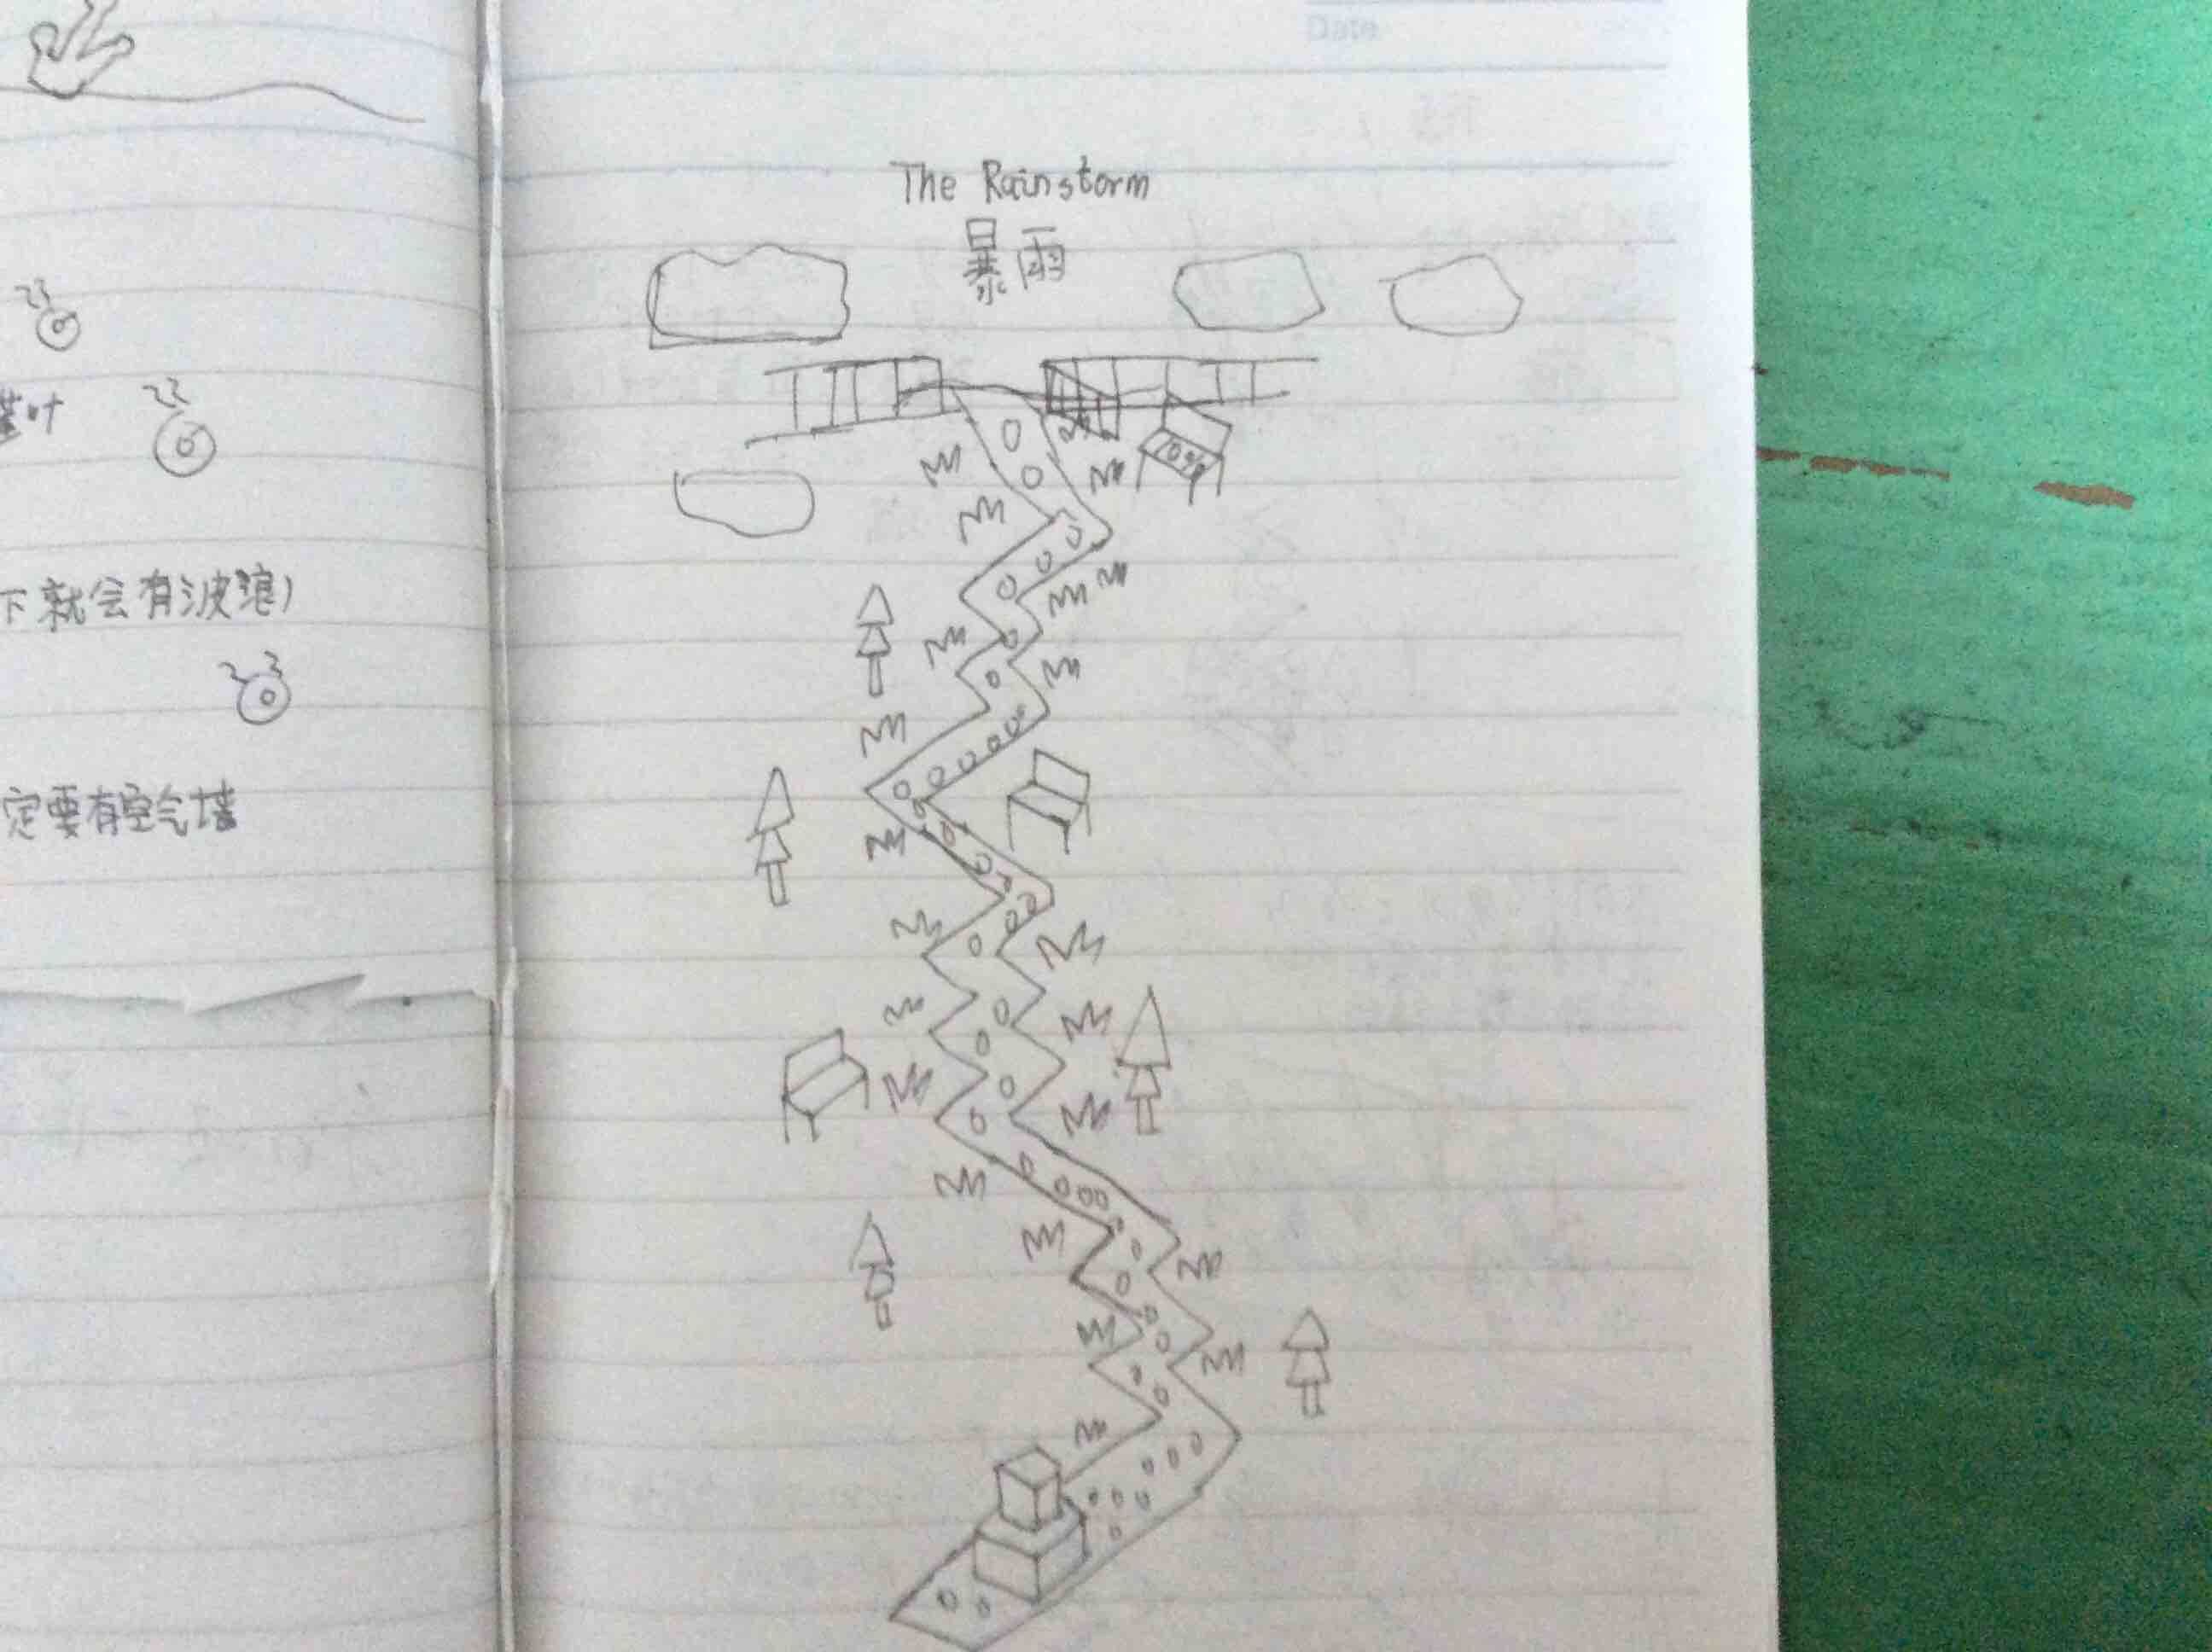 Date
The Rainstorm
暴雨
10%
叶
下就会有波浪)
定要有空气墙